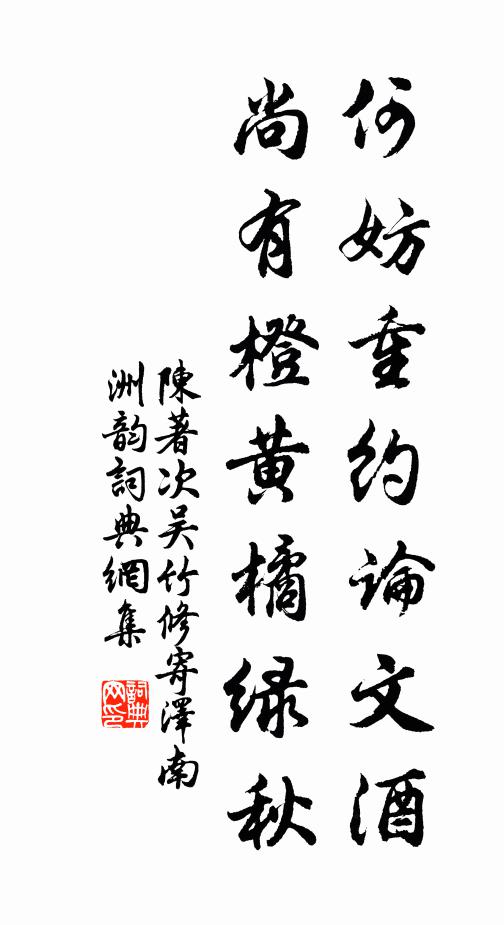 何妨重約論文酒
尚有橙黄橘緑秋
陳著次吴竹修寄澤南
洲韵詞典網集
詞典網印